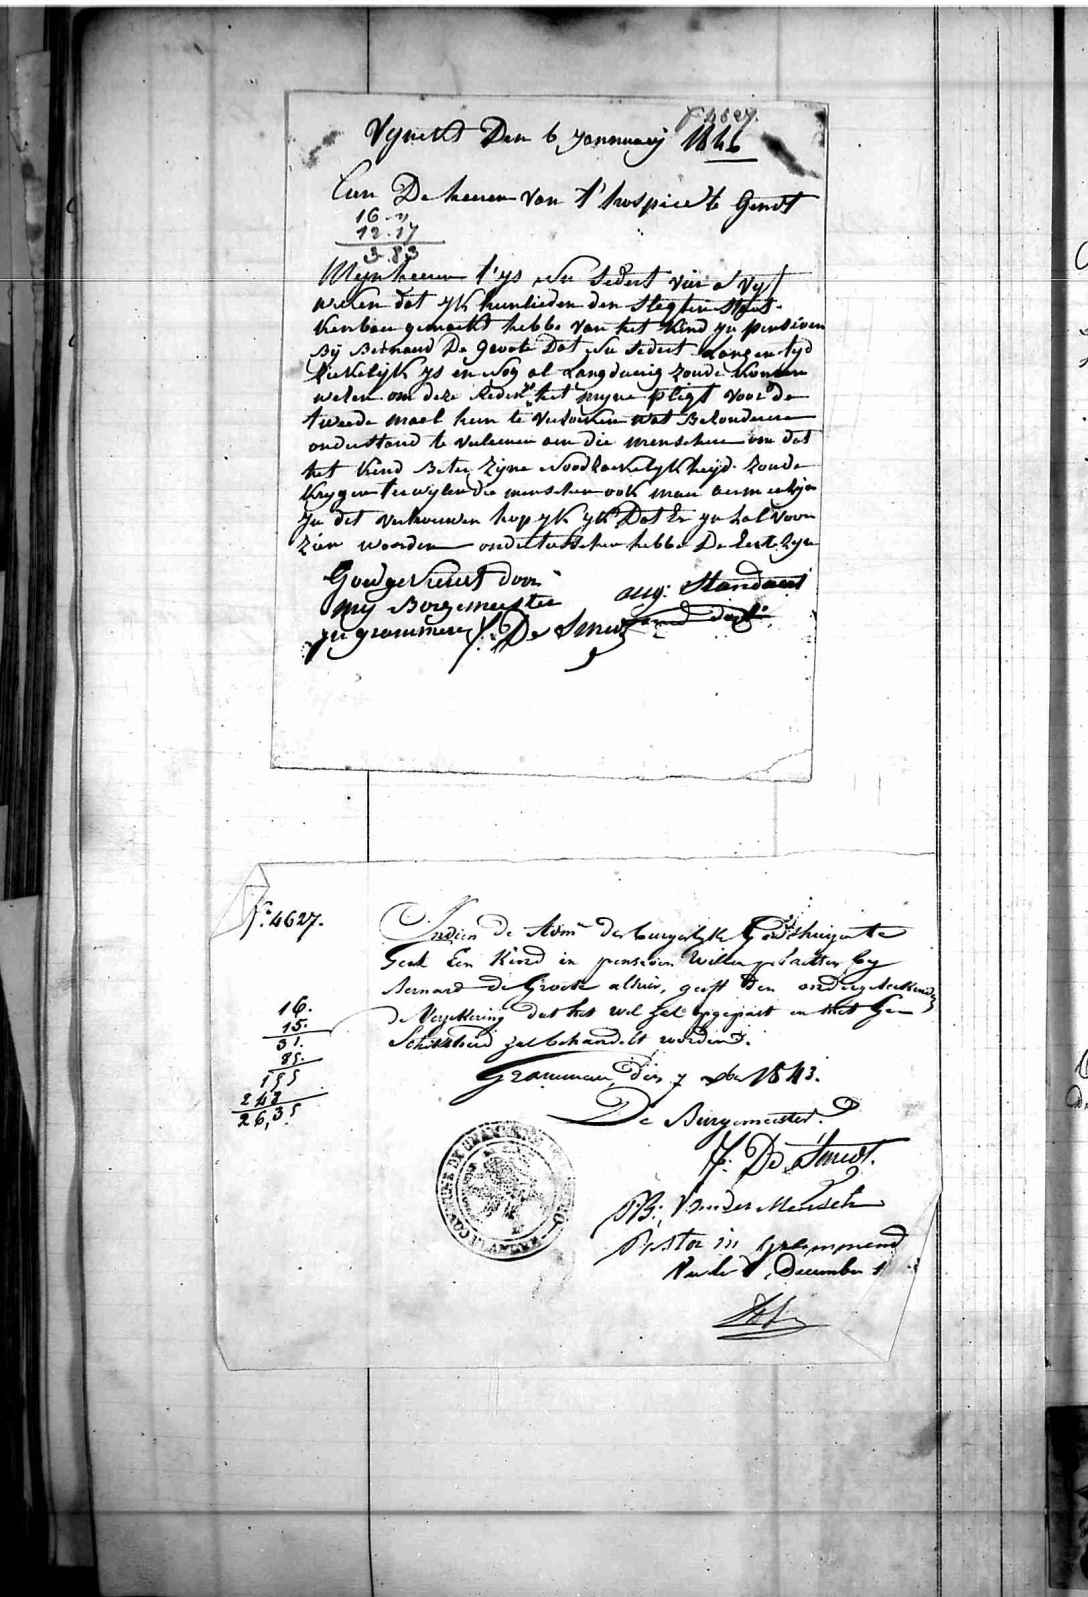 f° 4627.
Vynckt Den 6 Jannuarij 1846
Aen De heeren van t'hospice te Gendt
16 "
12.17
3.83
Mijnheeren t'ys Nu Sedert vier a vyf
weken dat yk hunlieden den Slegten
Kenbaer gemackt hebbe van het Kind yn pensioen
Bij Bernard De Groote Dat Nu Sedert Langen tyd
Ziekelijk ys en Nog al Langduerig zoude konnen
wesen om deze Reden het myne pligt voor de
tweede mael hun te versoeken wat Besondere
onderstand te verleenen aen die menschen om dat
het kind Beter Zyne Noodzaekelykheyd zoude
krygen terwylen die menschen ook maer aerme zyn
Jn dit vertrouwen hop yk Dat Er yn zal voor
Zien worden ondertusschen hebbe De Eer te Zyn
Goedgekeurt door
my Borgemeester
yn grammene J. De Smedt
aug: Standaert
f° 4627.
Indien de Adm der burgerlyke Godshuizen te
Gend Een Kind in pensioen Willen plaetsen by
Bernard De Groote alhier, geeft Den ondergeteekenden
de Verzekering dat het wel zal opgepast en met Ge
Schiktheid zal behandelt worden.
16.
15.
31.
85.
155
248
26,35
Grammen, den 7 xber 1843.
De Burgemeester.
J. De Smedt.
Pastor in grammene
December